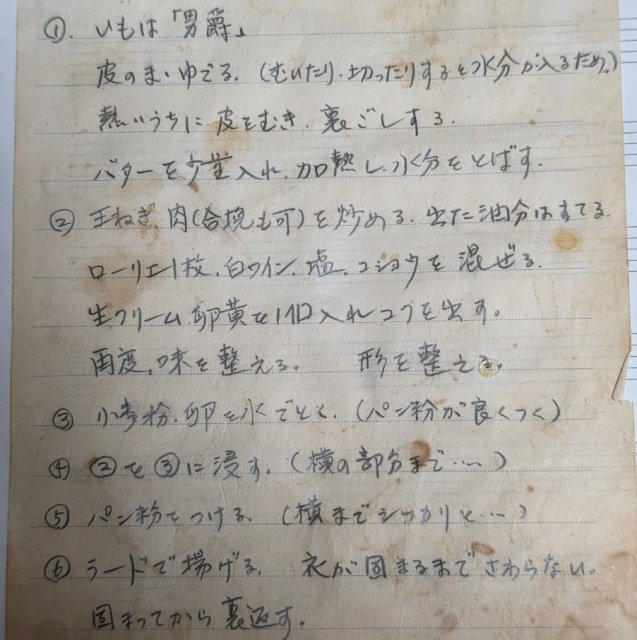 ①. いもは「男爵」
皮のまゝゆでる。(むいたり、切ったりすると水分が入るため。)
熱いうちに皮をむき、裏ごしする。
バターを少量入れ、加熱し、水分をとばす。
② 玉ねぎ、肉(合挽も可)を炒める、出た油分はすてる。
ローリエ1枚、白ワイン、塩、コショウを混ぜる。
生クリーム、卵黄を1個入れコクを出す。
再度、味を整える。 形を整える。
③ 小麦粉、卵を水でとく、(パン粉が良くつく)
④ ②を③に浸す。(横の部分まで……)
⑤ パン粉をつける。(横までシッカリと……)
⑥ ラードで揚げる。 衣が固まるまでさわらない。
固まってから裏返す。